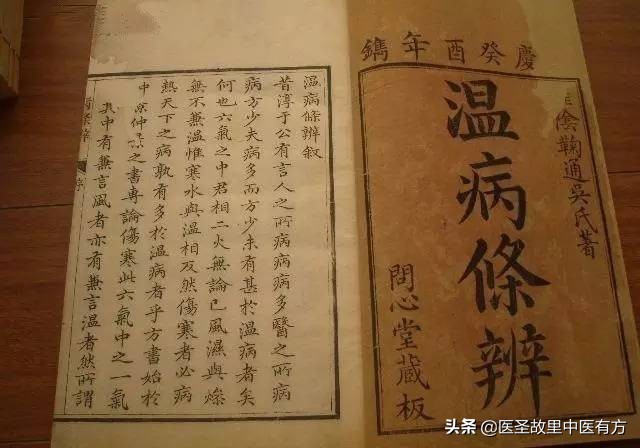 慶癸酉年鐫
陰鞠通吳氏著
温病條辨
問心堂藏板
温病條辨敘
昔淳于公有言人之所病病病多醫之所病
病方少夫病多而方少未有甚於温病者矣
何也六氣之中君相二火無論已風濕與燥
無不兼温惟寒水與温相反然傷寒者必病
熱天下之病孰有多於温病者乎方書始於
仲之書專論傷寒此六氣中之一氣
其中有兼言風者亦有兼言温者然所謂
條辨
头条 @医圣故里中医有方